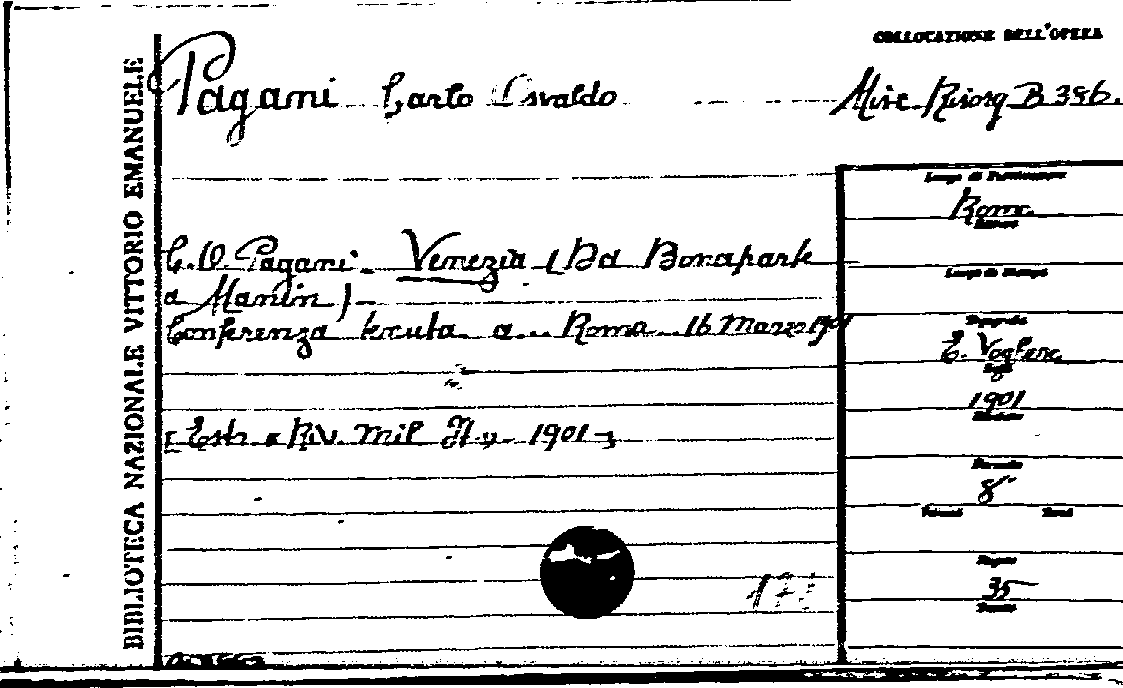 BIBLIOTECA NAZIONALE VITTORIO EMANUELE
COLLOCAZIONE DELL'OPERA
Pagani Carlo Osvaldo
Misc. Risorg. B 396.
C. O. Pagani. Venezia (Da Bonaparte
a Manin)
Conferenza tenuta a Roma 16 Marzo 1901
[Estr. Riv. Mil. It. 1901]
Luogo di Pubblicazione
Roma
Editore
Luogo di Stampa
Tipografia
E. Voghera
1901
Formato
8°
Pagine
35